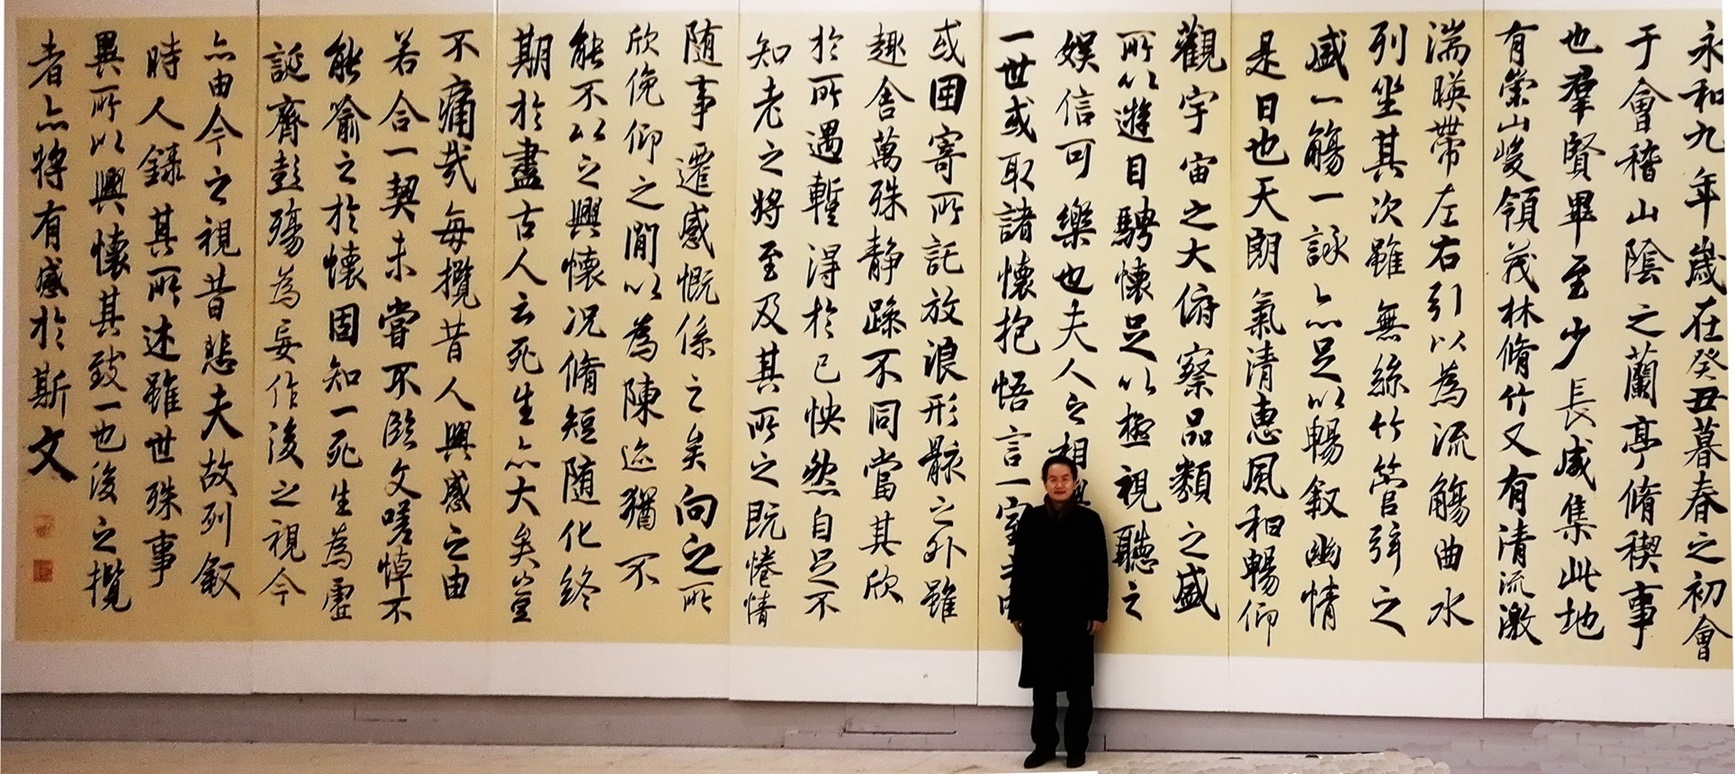 永和九年歲在癸丑暮春之初會
于會稽山陰之蘭亭脩稧事
也羣賢畢至少長咸集此地
有崇山峻領茂林脩竹又有清流激
湍暎帶左右引以為流觴曲水
列坐其次雖無絲竹管弦之
盛一觴一詠亦足以暢叙幽情
是日也天朗氣清惠風和暢仰
觀宇宙之大俯察品類之盛
所以遊目騁懷足以極視聽之
娛信可樂也夫人之相
一世或取諸懷抱悟言一室
或因寄所託放浪形骸之外雖
趣舍萬殊靜躁不同當其欣
於所遇蹔得於己怏然自足不
知老之將至及其所之既惓情
隨事遷感慨係之矣向之所
欣俛仰之閒以為陳迹猶不
能不以之興懷况脩短隨化終
期於盡古人云死生亦大矣豈
不痛哉每攬昔人興感之由
若合一契未嘗不臨文嗟悼不
能喻之於懷固知一死生為虛
誕齊彭殤為妄作後之視今
亦由今之視昔悲夫故列叙
時人錄其所述雖世殊事
異所以興懷其致一也後之攬
者亦將有感於斯文